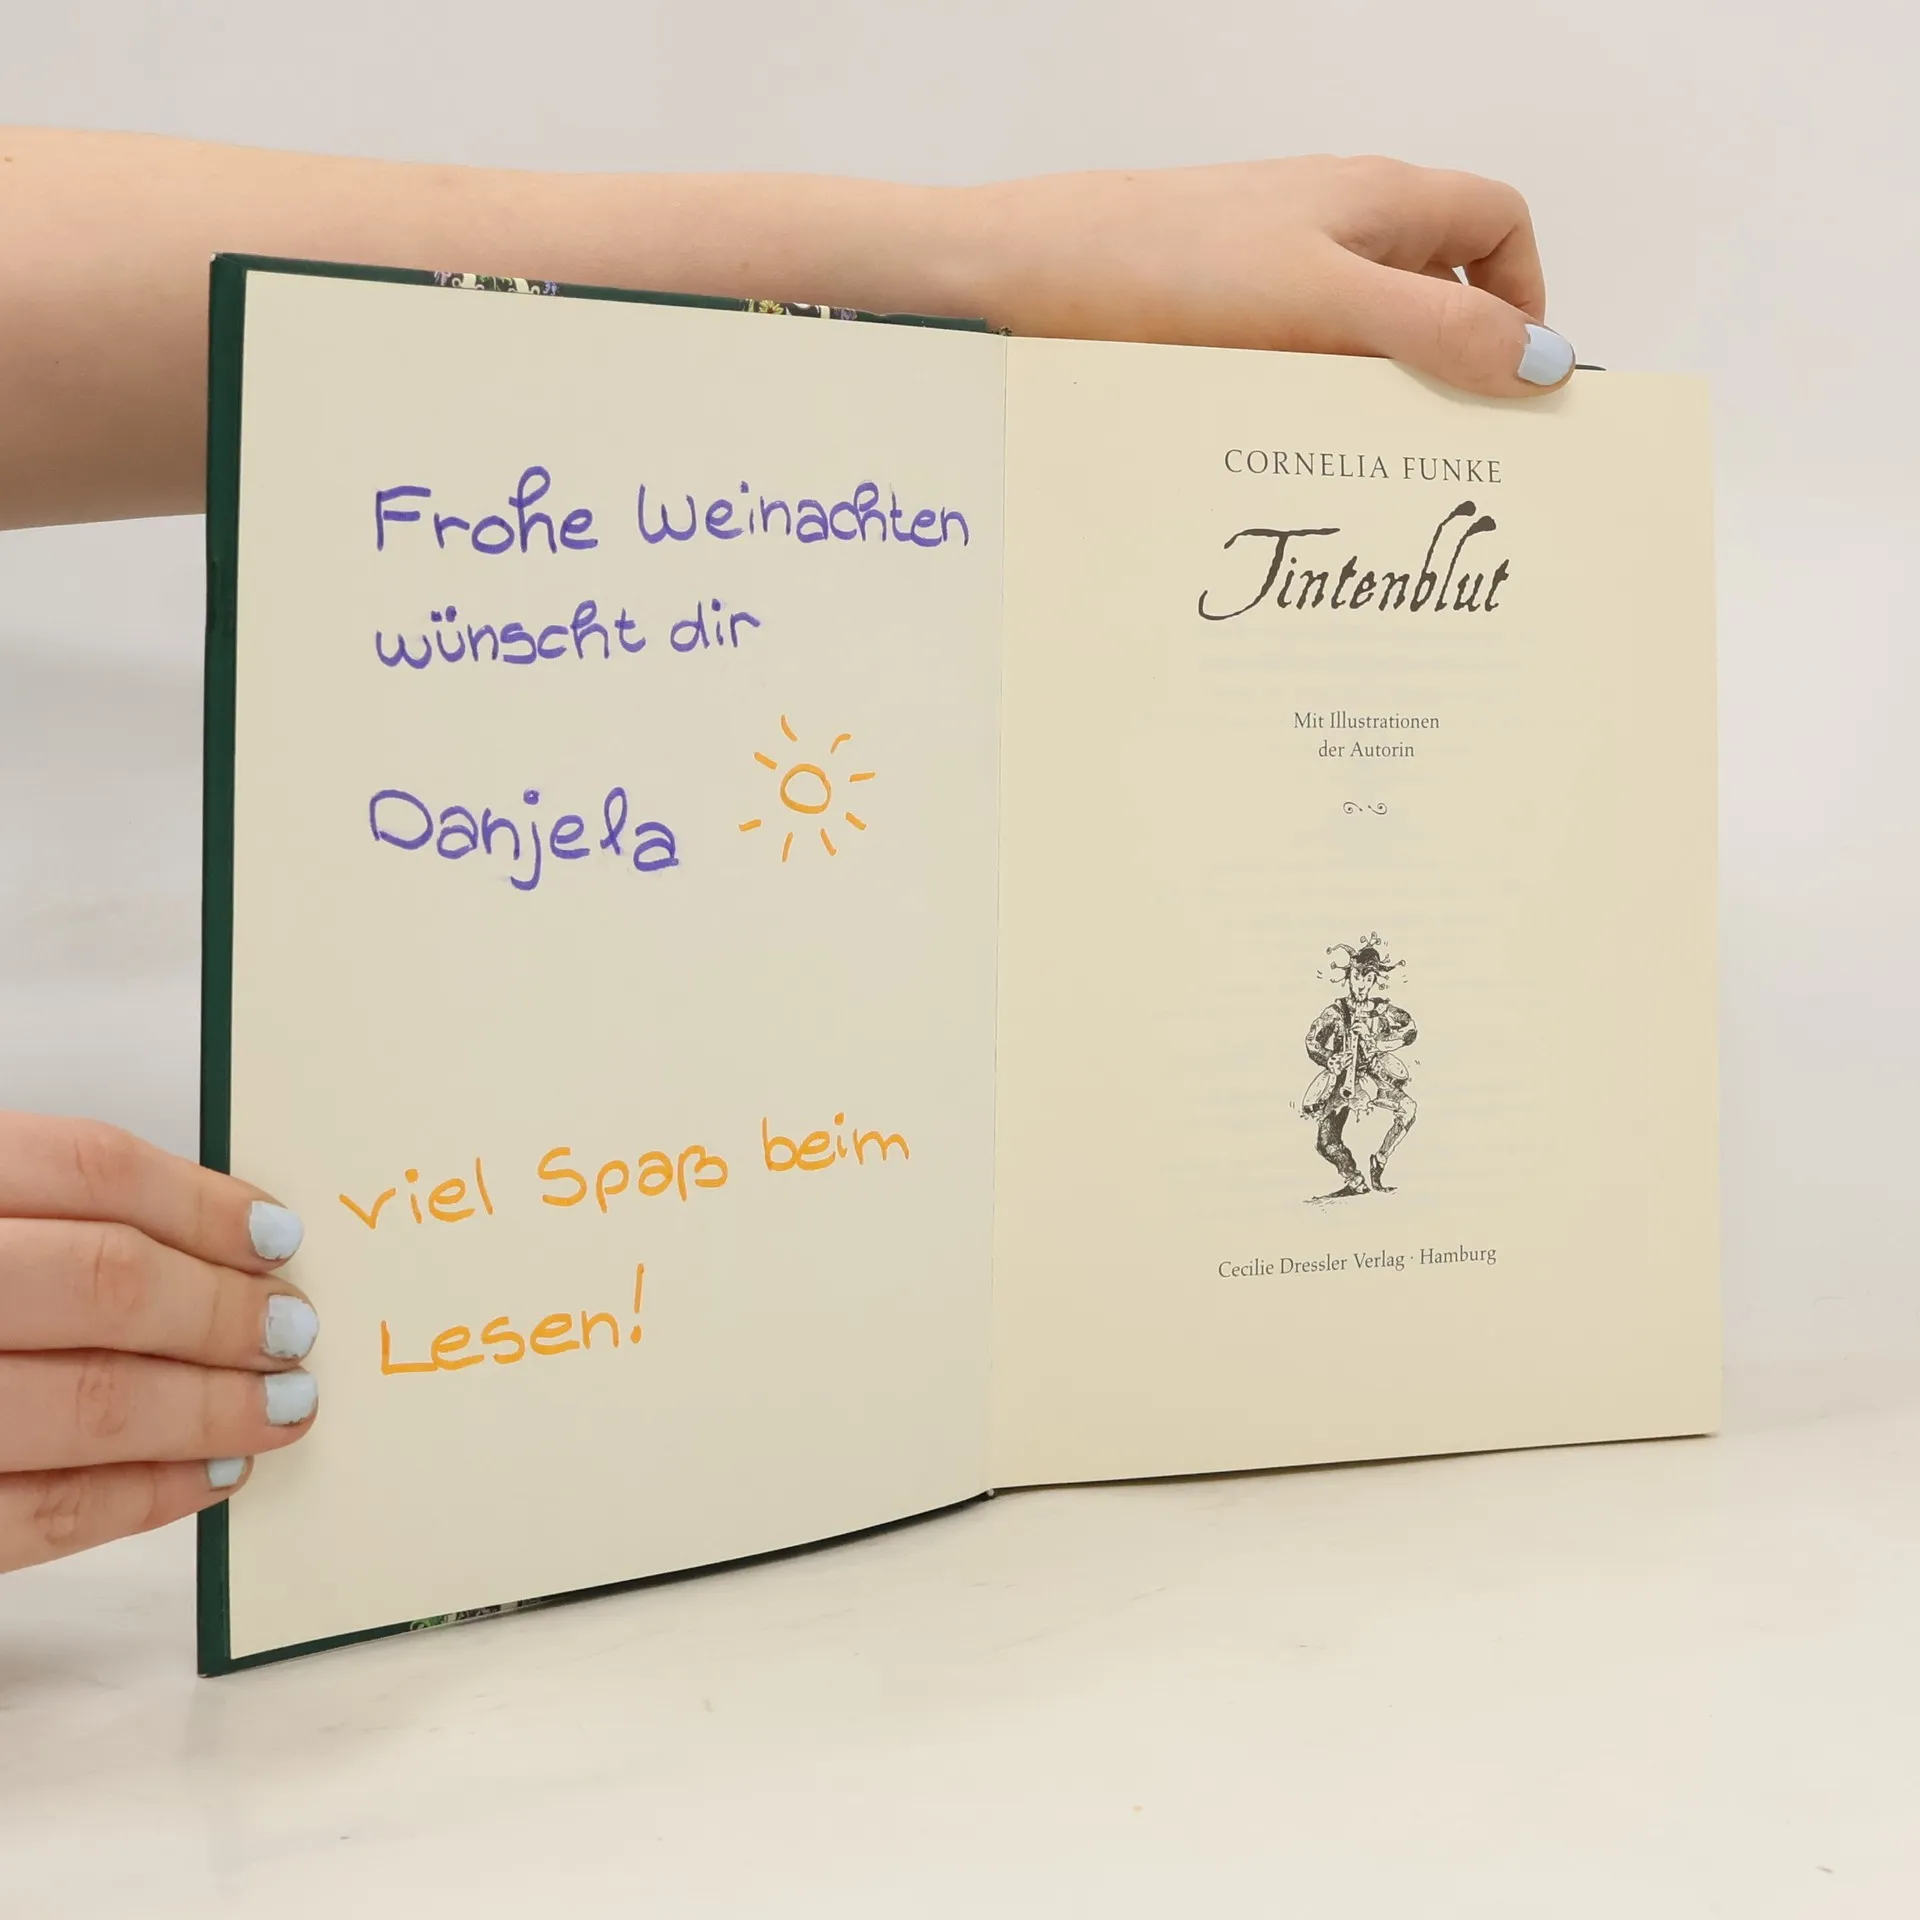 Frohe Weinachten
wünscht dir
Danjela
viel Spaß beim
Lesen!
CORNELIA FUNKE
Tintenblut
Mit Illustrationen
der Autorin
Cecilie Dressler Verlag · Hamburg